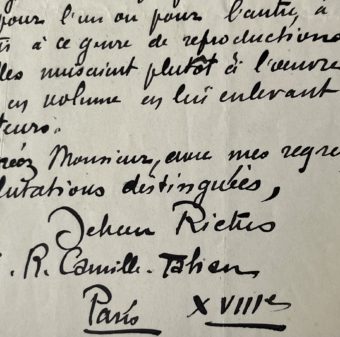 pour l'un ou pour l'autre, à
à ce genre de reproduction
les nuisaient plutôt à l'œuvre
en volume en lui enlevant
teurs.
Monsieur, avec mes regre
lutations distinguées,
Jehan Rictus
R. Camille-Tahan
Paris XVIIIe